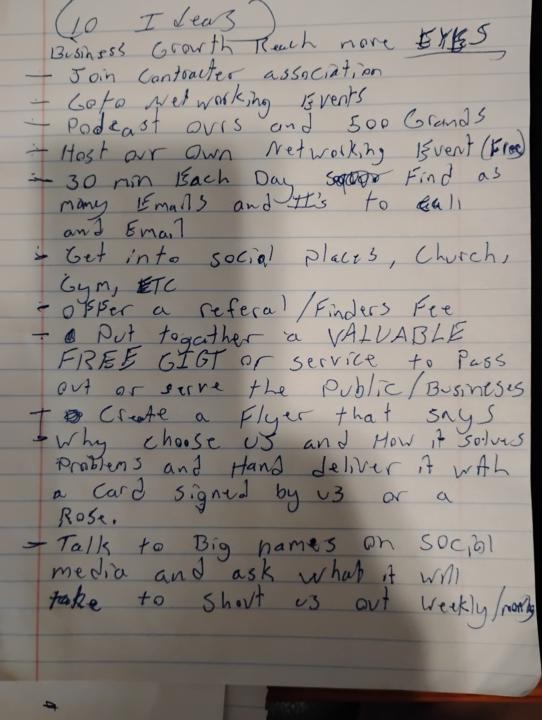 (10 Ideas)
Business Growth Reach more EYES
- Join Contracter association
- Goto Networking Events
- Podcast ours and 500 Grands
- Host our Own Networking Event (Free)
- 30 min Each Day Find as
many Emails and #'s to call
and Email
- Get into social places, Church,
Gym, ETC
- offer a referal/Finders Fee
- Put togather a VALUABLE
FREE GIGT or service to Pass
out or serve the Public/Busineses
- Create a Flyer that says
- Why choose us and How it solves
Problems and Hand deliver it with
a Card signed by us or a
Rose.
- Talk to Big names on social
media and ask what it will
take to Shout us out Weekly/